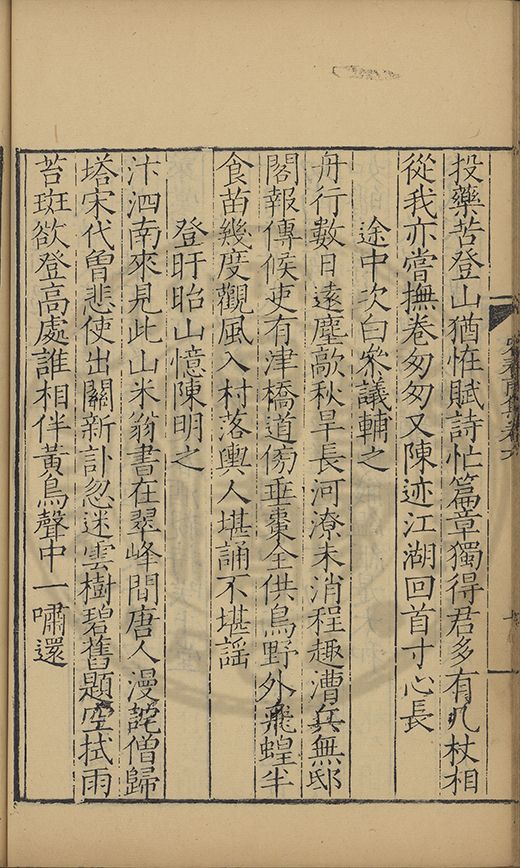 投藥苦登山猶恠賦詩忙篇章獨得君多有几杖相
從我亦嘗撫卷匆匆又陳迹江湖回首寸心長
途中次白叅議輔之
舟行數日遠塵歊秋旱長河潦未消程趣漕兵無邸
閣報傳候吏有津橋道傍垂棗全供鳥野外飛蝗半
食苗幾度觀風入村落輿人堪誦不堪謡
登盱眙山憶陳明之
汴泗南來見此山米翁書在翠峰間唐人漫詫僧歸
塔宋代曽悲使出關新訃忽迷雲樹碧舊題空拭雨
苔斑欲登高處誰相伴黃鳥聲中一嘯還